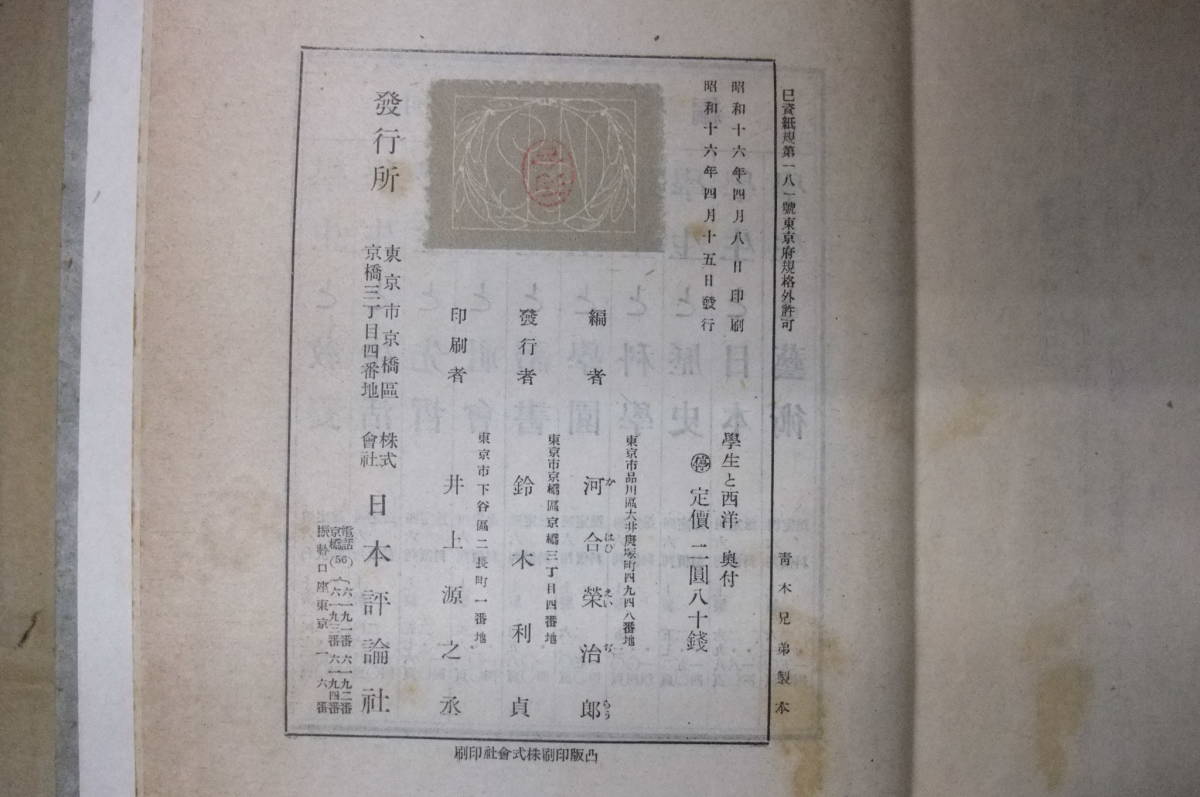 巳資紙規第一八一號東京府規格外許可
青木兄弟製本
昭和十六年四月八日印刷
昭和十六年四月十五日發行
學生と西洋 奥付
㊡ 定價 二圓八十錢
編者
東京市品川區大井庚塚町四九四八番地
河合榮治郎
かはひえいぢらう
發行者
東京市京橋區京橋三丁目四番地
鈴木利貞
印刷者
東京市下谷區二長町一番地
井上源之丞
發行所
東京市京橋區
京橋三丁目四番地
株式
會社
日本評論社
電話
京橋(56)
六一九一番 六一九二番
六一九三番 六一九四番
振替口座東京一六番
凸版印刷株式會社印刷